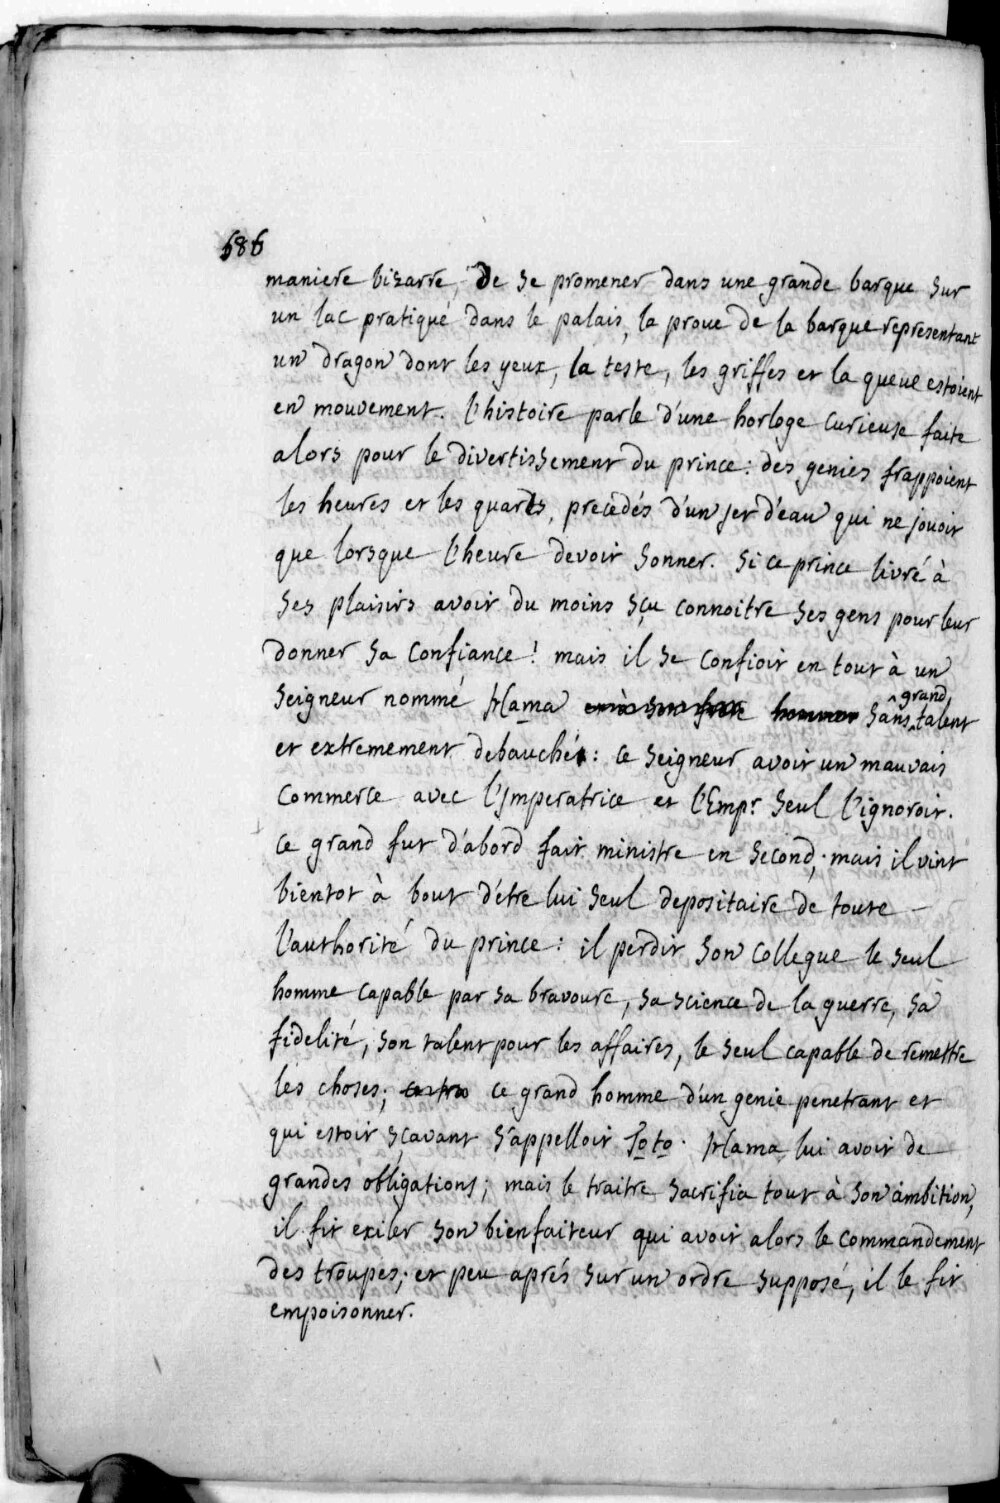 686
maniere bizarre, de se promener dans une grande barque sur
un lac pratique dans le palais, la proue de la barque representant
un dragon dont les yeux, la teste, les griffes et la queue estoient
en mouvement. l'histoire parle d'une horloge curieuse faite
alors pour le divertissement du prince: des genies frappoient
les heures et les quarts, precedés d'un jet d'eau qui ne jouoit
que lorsque l'heure devoit sonner. si ce prince livré à
ses plaisirs avoit du moins sçu connoitre ses gens pour leur
donner sa confiance! mais il se confioit en tout à un
seigneur nommé Hama sans grand talent
et extremement debauché: ce seigneur avoit un mauvais
commerce avec l'Imperatrice et l'Empr. seul l'ignoroit.
ce grand fut d'abord fait ministre en second, mais il vint
bientot à bout d'etre lui seul depositaire de toute
l'authorité du prince: il perdit son collegue le seul
homme capable par sa bravoure, sa science de la guerre, sa
fidelité, son talent pour les affaires, le seul capable de remettre
les choses; ce grand homme d'un genie penetrant et
qui estoit sçavant s'appelloit Toto. Hama lui avoit de
grandes obligations; mais le traitre sacrifia tout à son ambition,
il fit exiler son bienfaiteur qui avoit alors le commandement
des troupes; et peu aprés sur un ordre supposé, il le fit
empoisonner.